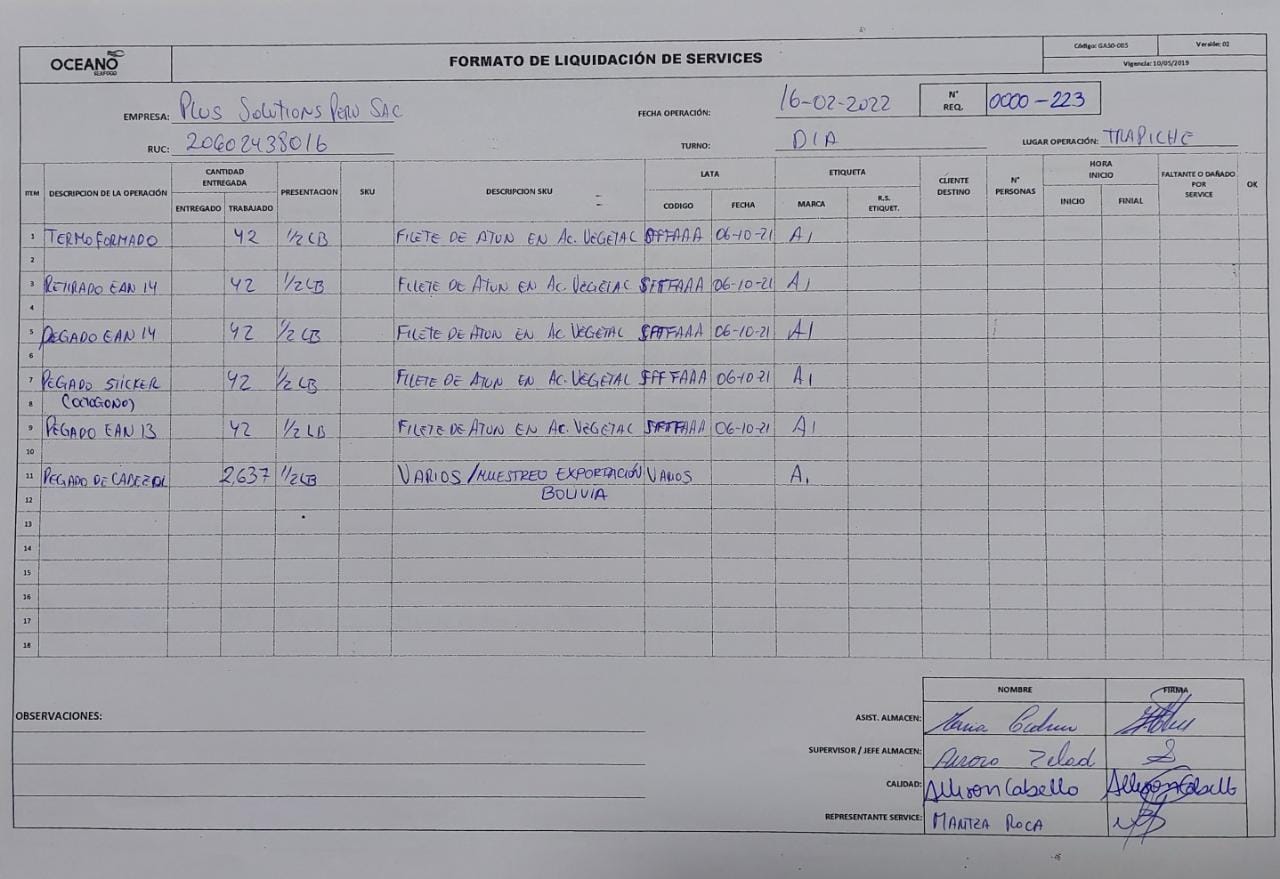 OCEANO
SEAFOOD
FORMATO DE LIQUIDACIÓN DE SERVICES
Código: GASO-005 Versión: 02
Vigencia: 10/05/2019
EMPRESA: Plus Solutions Peru SAC FECHA OPERACIÓN: 16-02-2022 N° REQ. 0000-223
RUC: 20602438016 TURNO: DIA LUGAR OPERACIÓN: TRAPICHE
ITEM DESCRIPCION DE LA OPERACIÓN CANTIDAD ENTREGADA PRESENTACION SKU DESCRIPCION SKU LATA ETIQUETA CLIENTE DESTINO N° PERSONAS HORA INICIO FALTANTE O DAÑADO POR SERVICE OK
ENTREGADO TRABAJADO CODIGO FECHA MARCA R.S. ETIQUET. INICIO FINIAL
1 TERMOFORMADO 42 1/2 LB FILETE DE ATUN EN AC. VEGETAL 06-10-21 A1
2
3 RETIRADO EAN 14 42 1/2 LB FILETE DE ATUN EN AC. VEGETAL 06-10-21 A1
4
5 PEGADO EAN 14 42 1/2 LB FILETE DE ATUN EN AC VEGETAL 06-10-21 A1
6
7 PEGADO STICKER 42 1/2 LB FILETE DE ATUN EN AC. VEGETAL 06-10-21 A1
8 (OCTOGONO)
9 PEGADO EAN 13 42 1/2 LB FILETE DE ATUN EN AC. VEGETAL 06-10-21 A1
10
11 PEGADO DE CABEZAL 2,637 1/2 LB VARIOS / MUESTREO EXPORTACIÓN VARIOS A1
12 BOLIVIA
13
14
15
16
17
18
NOMBRE FIRMA
OBSERVACIONES:
ASIST. ALMACEN: Maria
SUPERVISOR / JEFE ALMACEN:
CALIDAD: Allison Cabello Allison Cabello
REPRESENTANTE SERVICE: MANTZA ROCA